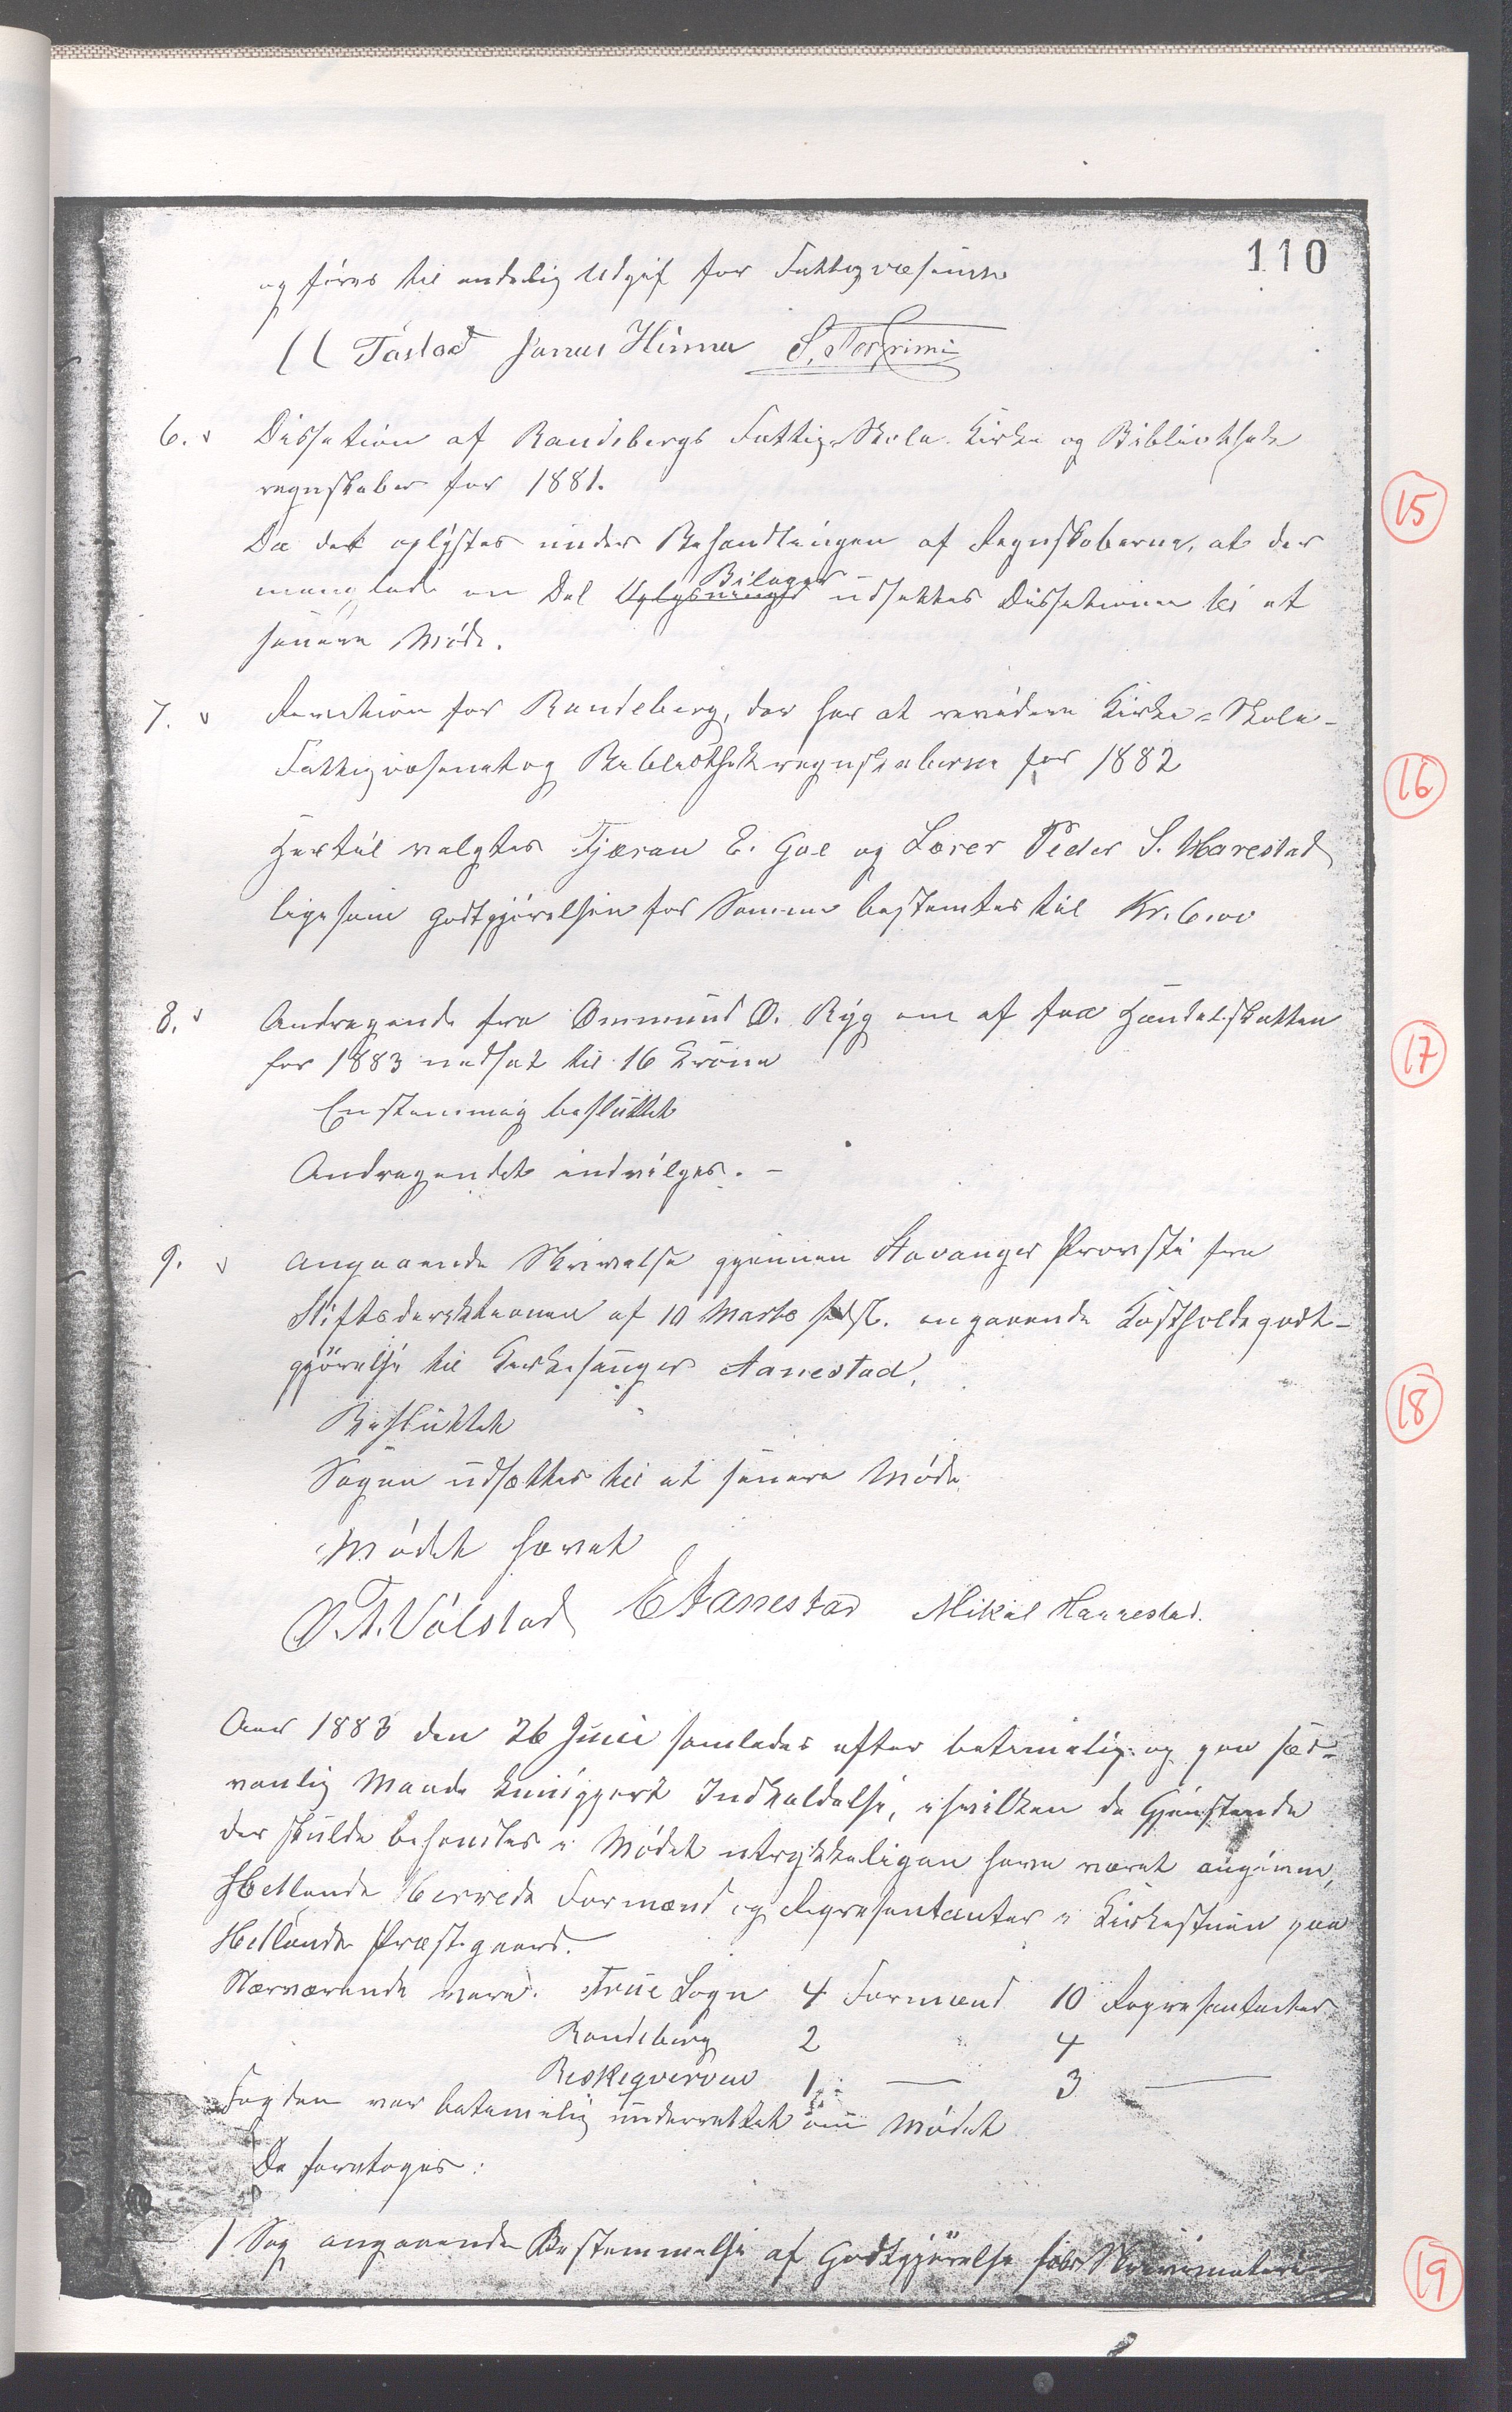 110
og føres til endelig Udgift for Fattigvæsenet
Tastad Jonas Hinna S. Torgrimsen
6. Decision af Randebergs Fattig- Skole- Kirke og Bibliotheks
regnskaber for 1881.
Da det oplystes under Behandlingen af Regnskaberne, at der
Bilager -
manglede en Del Oplysninger udsættes Decisionen til et
senere Møde.
7. Revision for Randeberg, der har at revidere Kirke- Skole-
Fattigvæsenet og Bibliothekregnskaberne for 1882
Hertil valgtes Tjøran E. Goe og Lærer Peder S. Harestad
ligesom Godtgjørelsen for Samme bestemtes til Kr. 6.00
8. Andragende fra Ommund O. Ryg om at faa Handelsskatten
for 1883 nedsat til 16 Kroner
Enstemmig besluttet
Andragendet indvilges. -
9. Angaaende Skrivelse gjennem Stavanger Provsti fra
Stiftsdirektionen af 10 Marts sidstl. angaaende Kostholdsgodt-
gjørelse til Kirkesanger Aanestad.
Besluttet
Sagen udsættes til et senere Møde.
Mødet hævet
O. A. Volstad E Aanestad Mikal Harrestad.
15
16
17
18
Aar 1883 den 26 Juni samledes efter betimelig og paa sæd-
vanlig Maade kundgjort Indkaldelse, i hvilken de Gjenstande
der skulde behandles i Mødet udtrykkeligen have været angivne,
Hetlands Herreds Formænd og Repræsentanter i Kirkestuen paa
Hetlands Præstegaard.
Nærværende vare: Frue Sogn 4 Formænd 10 Repræsentanter
Randeberg 2 " 4
Riskekverven 1 — 3 —
Fogden var betimelig underrettet om Mødet
De foretoges:
1 Sag angaaende Bestemmelse af Godtgjørelse for Skrivemateri-
19